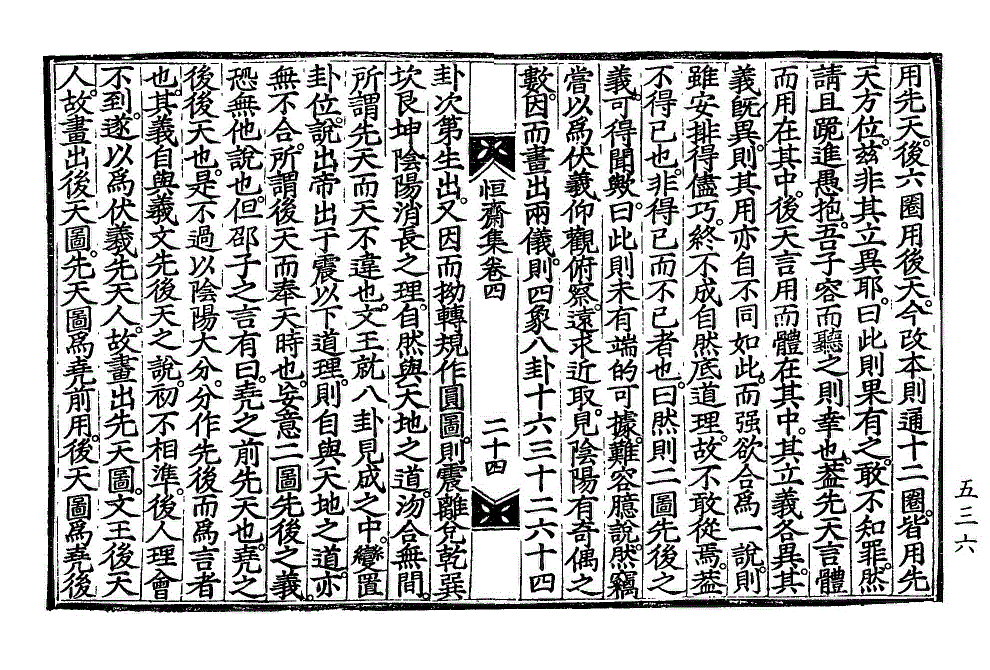 用先天。後六圈用後天。今改本則通十二圈。皆用先
天方位。玆非其立異耶。曰此則果有之。敢不知罪。然
請且跪進愚抱。吾子容而聽之則幸也。盖先天言體
而用在其中。後天言用而體在其中。其立義各異。其
義旣異。則其用亦自不同如此。而强欲合爲一說。則
雖安排得儘巧。終不成自然底道理。故不敢從焉。盖
不得已也。非得已而不已者也。曰然則二圖先後之
義。可得聞歟。曰此則未有端的可據。難容臆說。然竊
嘗以爲伏羲仰觀俯察。遠求近取。見陰陽有奇偶之
數。因而畫出兩儀。則四象八卦十六三十二六十四
恒齋集卷四
二十四
卦次第生出。又因而拗轉規作圓圖。則震離兌乾巽
坎艮坤陰陽消長之理。自然與天地之道。沕合無間。
所謂先天而天不違也。文王就八卦見成之中。變置
卦位。說出帝出于震以下道理。則自與天地之道。亦
無不合。所謂後天而奉天時也。妄意二圖先後之義
恐無他說也。但邵子之言有曰。堯之前先天也。堯之
後後天也。是不過以陰陽大分。分作先後而爲言者
也。其義自與羲文先後天之說。初不相準。後人理會
不到。遂以爲伏羲先天人。故畫出先天圖。文王後天
人。故畫出後天圖。先天圖爲堯前用。後天圖爲堯後
五三六